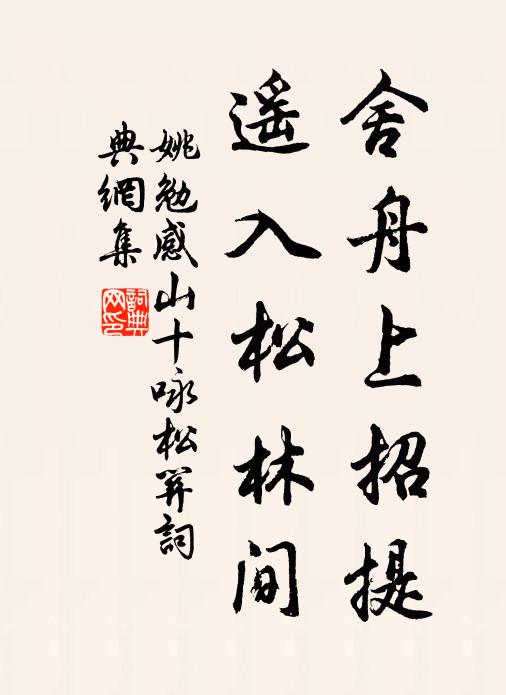 舍舟上招提
遥入松林間
姚勉感山十咏松關詞
典網集
詞典
网印